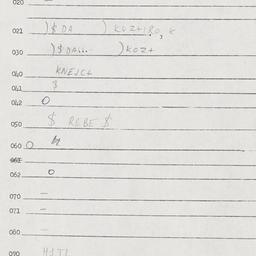 020 —
021 )$ DA ) KOZ+IRO,
030 )$ DA... ) KOZ+
040 KNEJC+
041 $
042 O
050 $ REBE $
060 O
061
062 O
070 —
071 —
080 —
090 HITI